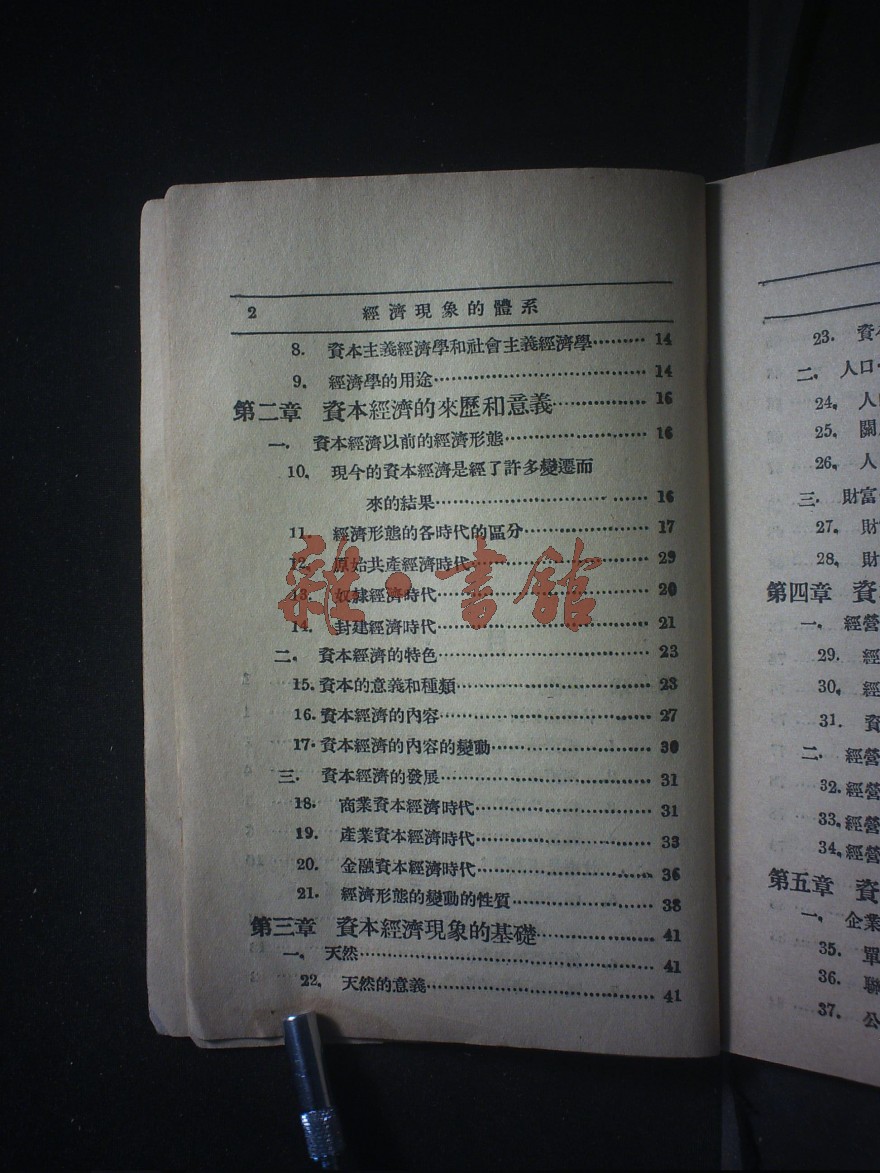 2 經濟現象的體系
8. 資本主義經濟學和社會主義經濟學……… 14
9. 經濟學的用途……… 14
第二章 資本經濟的來歷和意義……… 16
一. 資本經濟以前的經濟形態……… 16
10. 現今的資本經濟是經了許多變遷而
來的結果……… 16
11. 經濟形態的各時代的區分……… 17
12. 原始共產經濟時代……… 29
13. 奴隸經濟時代……… 20
14. 封建經濟時代……… 21
二. 資本經濟的特色……… 23
15. 資本的意義和種類……… 23
16. 資本經濟的內容……… 27
17. 資本經濟的內容的變動……… 30
三. 資本經濟的發展……… 31
18. 商業資本經濟時代……… 31
19. 產業資本經濟時代……… 33
20. 金融資本經濟時代……… 36
21. 經濟形態的變動的性質……… 38
第三章 資本經濟現象的基礎……… 41
一. 天然……… 41
22. 天然的意義……… 41
雜·書館
23. 資
二. 人口
24. 人
25. 關
26. 人
三. 財富
27. 財
28. 財
第四章 資
一. 經營
29. 經
30. 經
31. 資
二. 經營
32. 經營
33. 經營
34. 經營
第五章 資
一. 企業
35. 單
36. 聯
37. 公